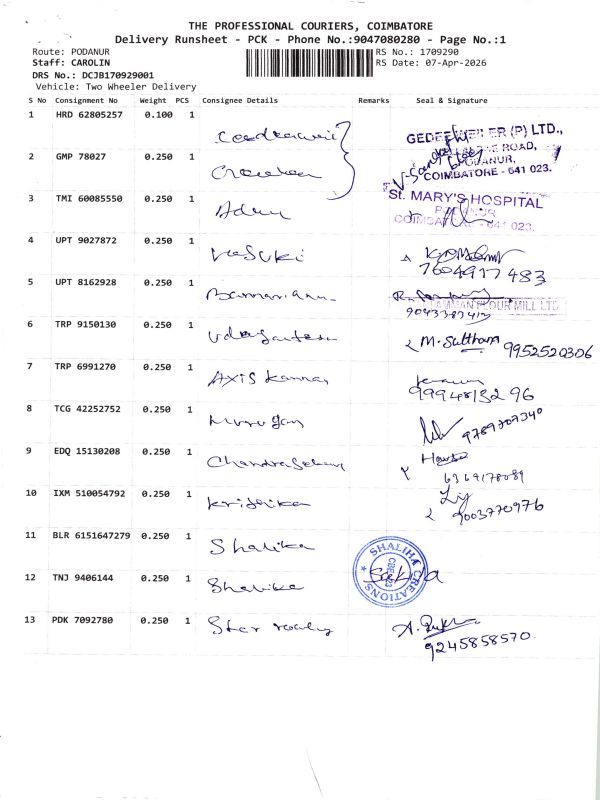 THE PROFESSIONAL COURIERS, COIMBATORE
Delivery Runsheet - PCK - Phone No.:9047080280 - Page No.:1
Route: PODANUR
RS No.: 1709290
Staff: CAROLIN
RS Date: 07-Apr-2026
DRS No.: DCJB170929001
Vehicle: Two Wheeler Delivery
S No Consignment No Weight PCS Consignee Details Remarks Seal & Signature
1 HRD 62805257 0.100 1
(P) LTD.,
ROAD,
2 GMP 78027 0.250 1
COIMBATORE - 641 023.
3 TMI 60085550 0.250 1
St. MARY'S HOSPITAL
PODANUR
COIMBATORE - 641 023.
4 UPT 9027872 0.250 1 Vasuki
7604917483
5 UPT 8162928 0.250 1
FLOUR MILL LTD
6 TRP 9150130 0.250 1 M. 9952520306
7 TRP 6991270 0.250 1 Axis Kannan
8 TCG 42252752 0.250 1 Murugan 9789707340
9 EDQ 15130208 0.250 1 Chandrasekar
6369178089
10 IXM 510054792 0.250 1 Krishika
9003770976
11 BLR 6151647279 0.250 1 Shalika
SHALIHA CREATIONS
12 TNJ 9406144 0.250 1 Shalika
13 PDK 7092780 0.250 1 Star
9245858570